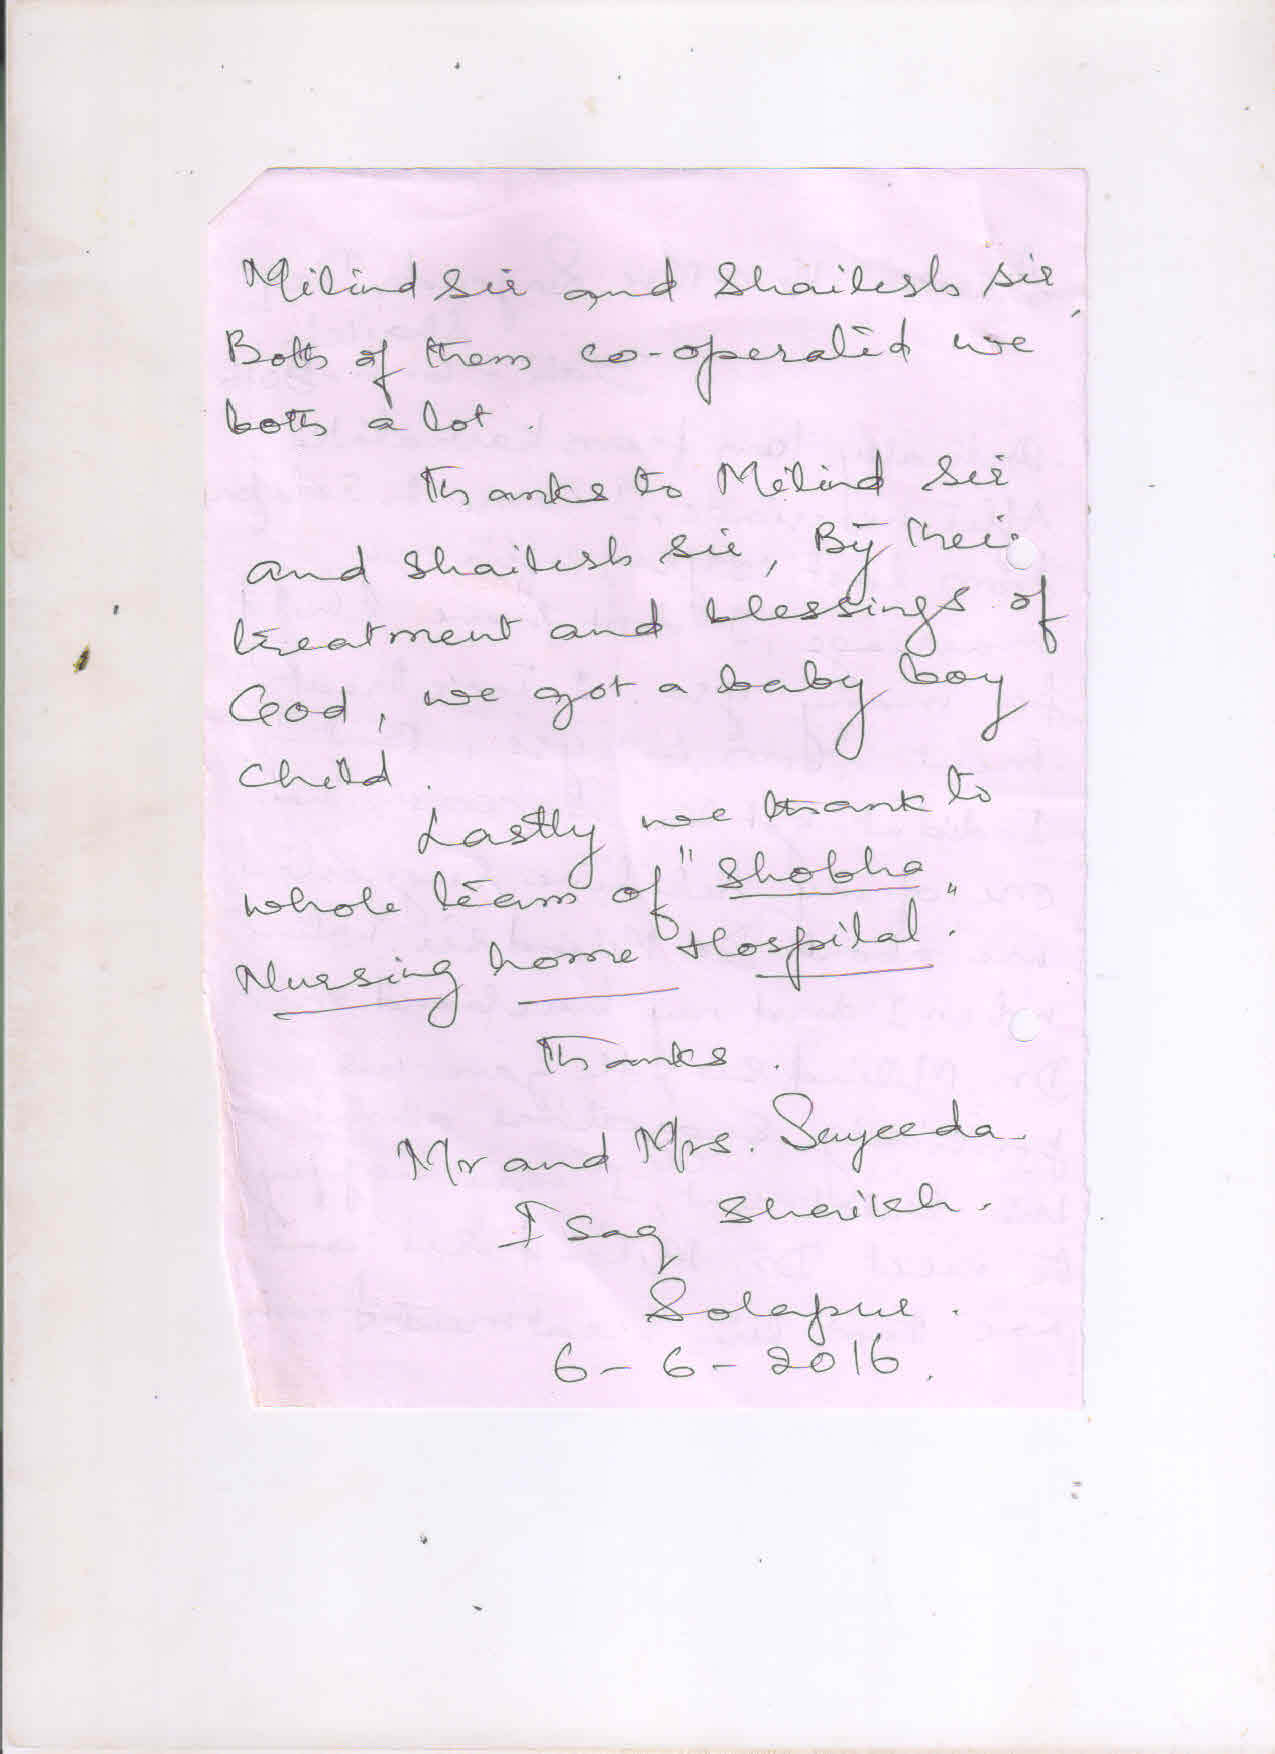 Milind Sir and Shailesh Sir,
Both of them co-operated we
both a lot.
Thanks to Milind Sir
and Shailesh Sir, By their
treatment and blessings of
God, we got a baby boy
child.
Lastly we thank to
whole team of "Shobha
Nursing home Hospital".
Thanks.
Mr and Mrs. Sayeeda
Isaq Shaikh.
Solapur.
6-6-2016.